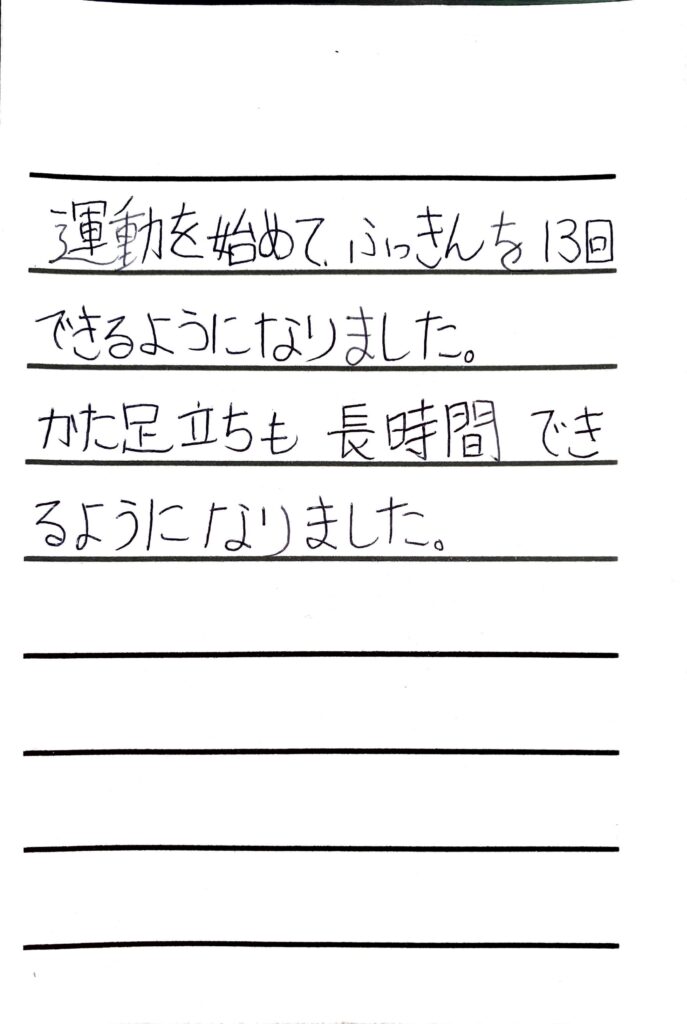 運動を始めて、ふっきんを13回
できるようになりました。
かた足立ちも長時間でき
るようになりました。